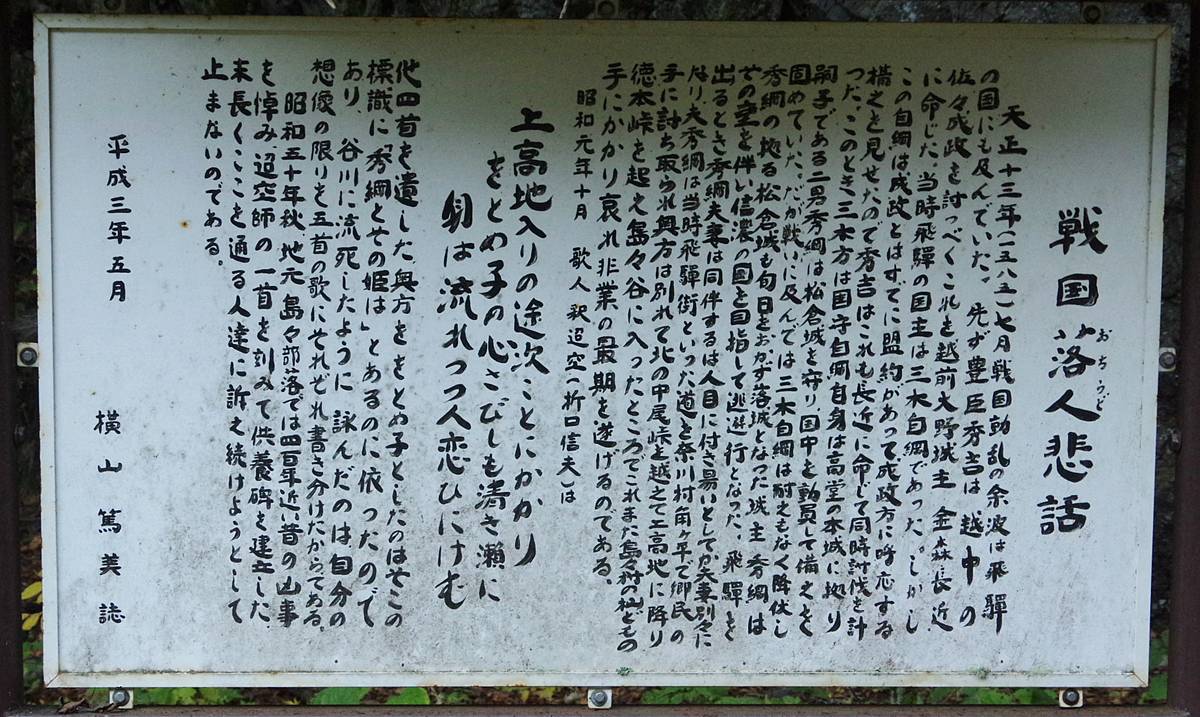 戦国落人悲話
おちうど
天正十三年(一五八五)七月戦国動乱の余波は飛騨
の国にも及んでいた。先ず豊臣秀吉は越中の
佐々成政を討つべくこれを越前大野城主金森長近
に命じた。当時飛騨の国主は三木自綱であった。しかし
この自綱は成政とはすでに盟約があって成政方に呼応する
構えを見せたので秀吉はこれも長近に命じて同時討伐を計
った。このとき三木方は国守自綱自身は高堂の本城に拠り
嗣子である二男秀綱は松倉城を守り国中を動員して備えを
固めていた。だが戦いに及んでは三木自綱は耐えもなく降伏し
秀綱の拠る松倉城も旬日をおかず落城となった城主秀綱は
その室を伴い信濃の国を目指して逃避行となった。飛騨を
出るとき秀綱夫妻は同伴するは人目に付き易いとしてか夫妻別々に
なり夫秀綱は当時飛騨街といった道を奈川村角ヶ平で郷民の
手に討ち取られ奥方は別れて北の中尾峠を越えて上高地に降り
徳本峠を起え島々谷に入ったところでこれまた島々村の杣どもの
手にかかり哀れ非業の最期を遂げるのである。
昭和元年十月 歌人 釈迢空(折口信夫)は
上高地入りの途次ことにかかり
をとめ子の心さびしも清き瀬に
身は流れつつ人恋ひにけむ
他四首を遺した奥方ををとめ子としたのはそこの
標識に「秀綱とその姫は」とあるのに依ったので
あり、谷川に流死したように詠んだのは自分の
想像の限りを五首の歌にそれぞれ書き分けたからである。
昭和五十年秋地元島々部落では四百年近い昔の凶事
を悼み迢空師の一首を刻みて供養碑を建立した。
末長くここを通る人達に訴え続けようとして
止まないのである。
平成三年五月
横山篤美誌